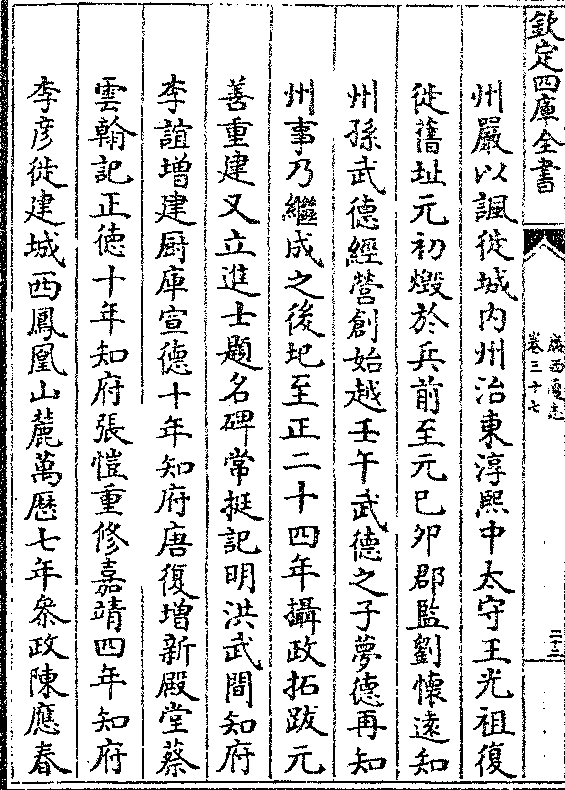 欽定四庫全書
廣西通志
卷三十七
二十二
州嚴以諷徙城内州治東淳熙中太守王光祖復
徙舊址元初燬於兵前至元己夘郡監劉懐逺知
州孫武德經營創始越壬午武德之子夢德再知
州事乃繼成之後圮至正二十四年攝政拓跋元
善重建又立進士題名碑常挺記明洪武間知府
李誼増建厨庫宣德十年知府唐復増新殿堂蔡
雲翰記正徳十年知府張愷重修嘉靖四年知府
李彦徙建城西鳳凰山麓萬歴七年叅政陳應春